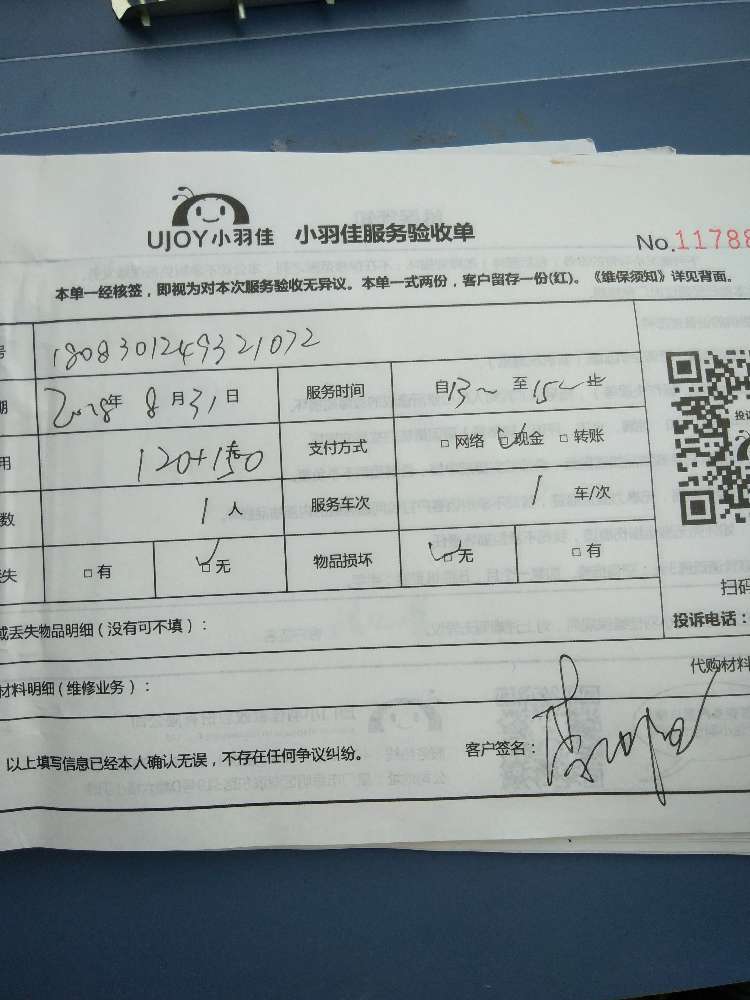 UJOY小羽佳 小羽佳服务验收单
No.11788
本单一经核签，即视为对本次服务验收无异议。本单一式两份，客户留存一份(红)。《维保须知》详见背面。
号 180830124932 1072
期 2018年 8 月 31 日 服务时间 自 13~ 至 15~ 止
用 120+150元 支付方式 □ 网络 ☑ 现金 □ 转账
数 1 人 服务车次 1 车/次
失 □ 有 ☑ 无 物品损坏 ☑ 无 □ 有
扫码
或丢失物品明细（没有可不填）：
投诉电话：
材料明细（维修业务）：
代购材料
以上填写信息已经本人确认无误，不存在任何争议纠纷。
客户签名：